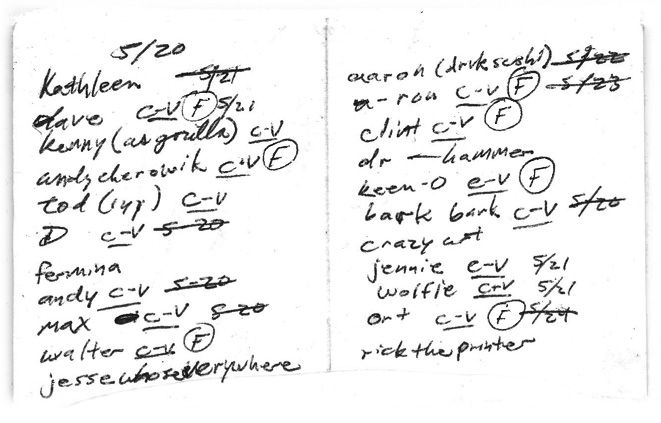 5/20
Kathleen 5/21
dave c-v F 5/21
kenny (as gorilla) c-v
andy cherowik c-v F
tod (iyp) c-v
D c-v 5-20
fermina
andy c-v 5-20
max c-v 5-20
walter c-v F
jesse whoseverywhere
aaron (drnksushi) 5/22
a-ron c-v F 5/23
clint c-v F
dr — hammer
keen-o e-v F
bark bark c-v 5/20
crazy art
jennie e-v 5/21
wolfie c-v 5/21
ort c-v F 5/24
rick the printer